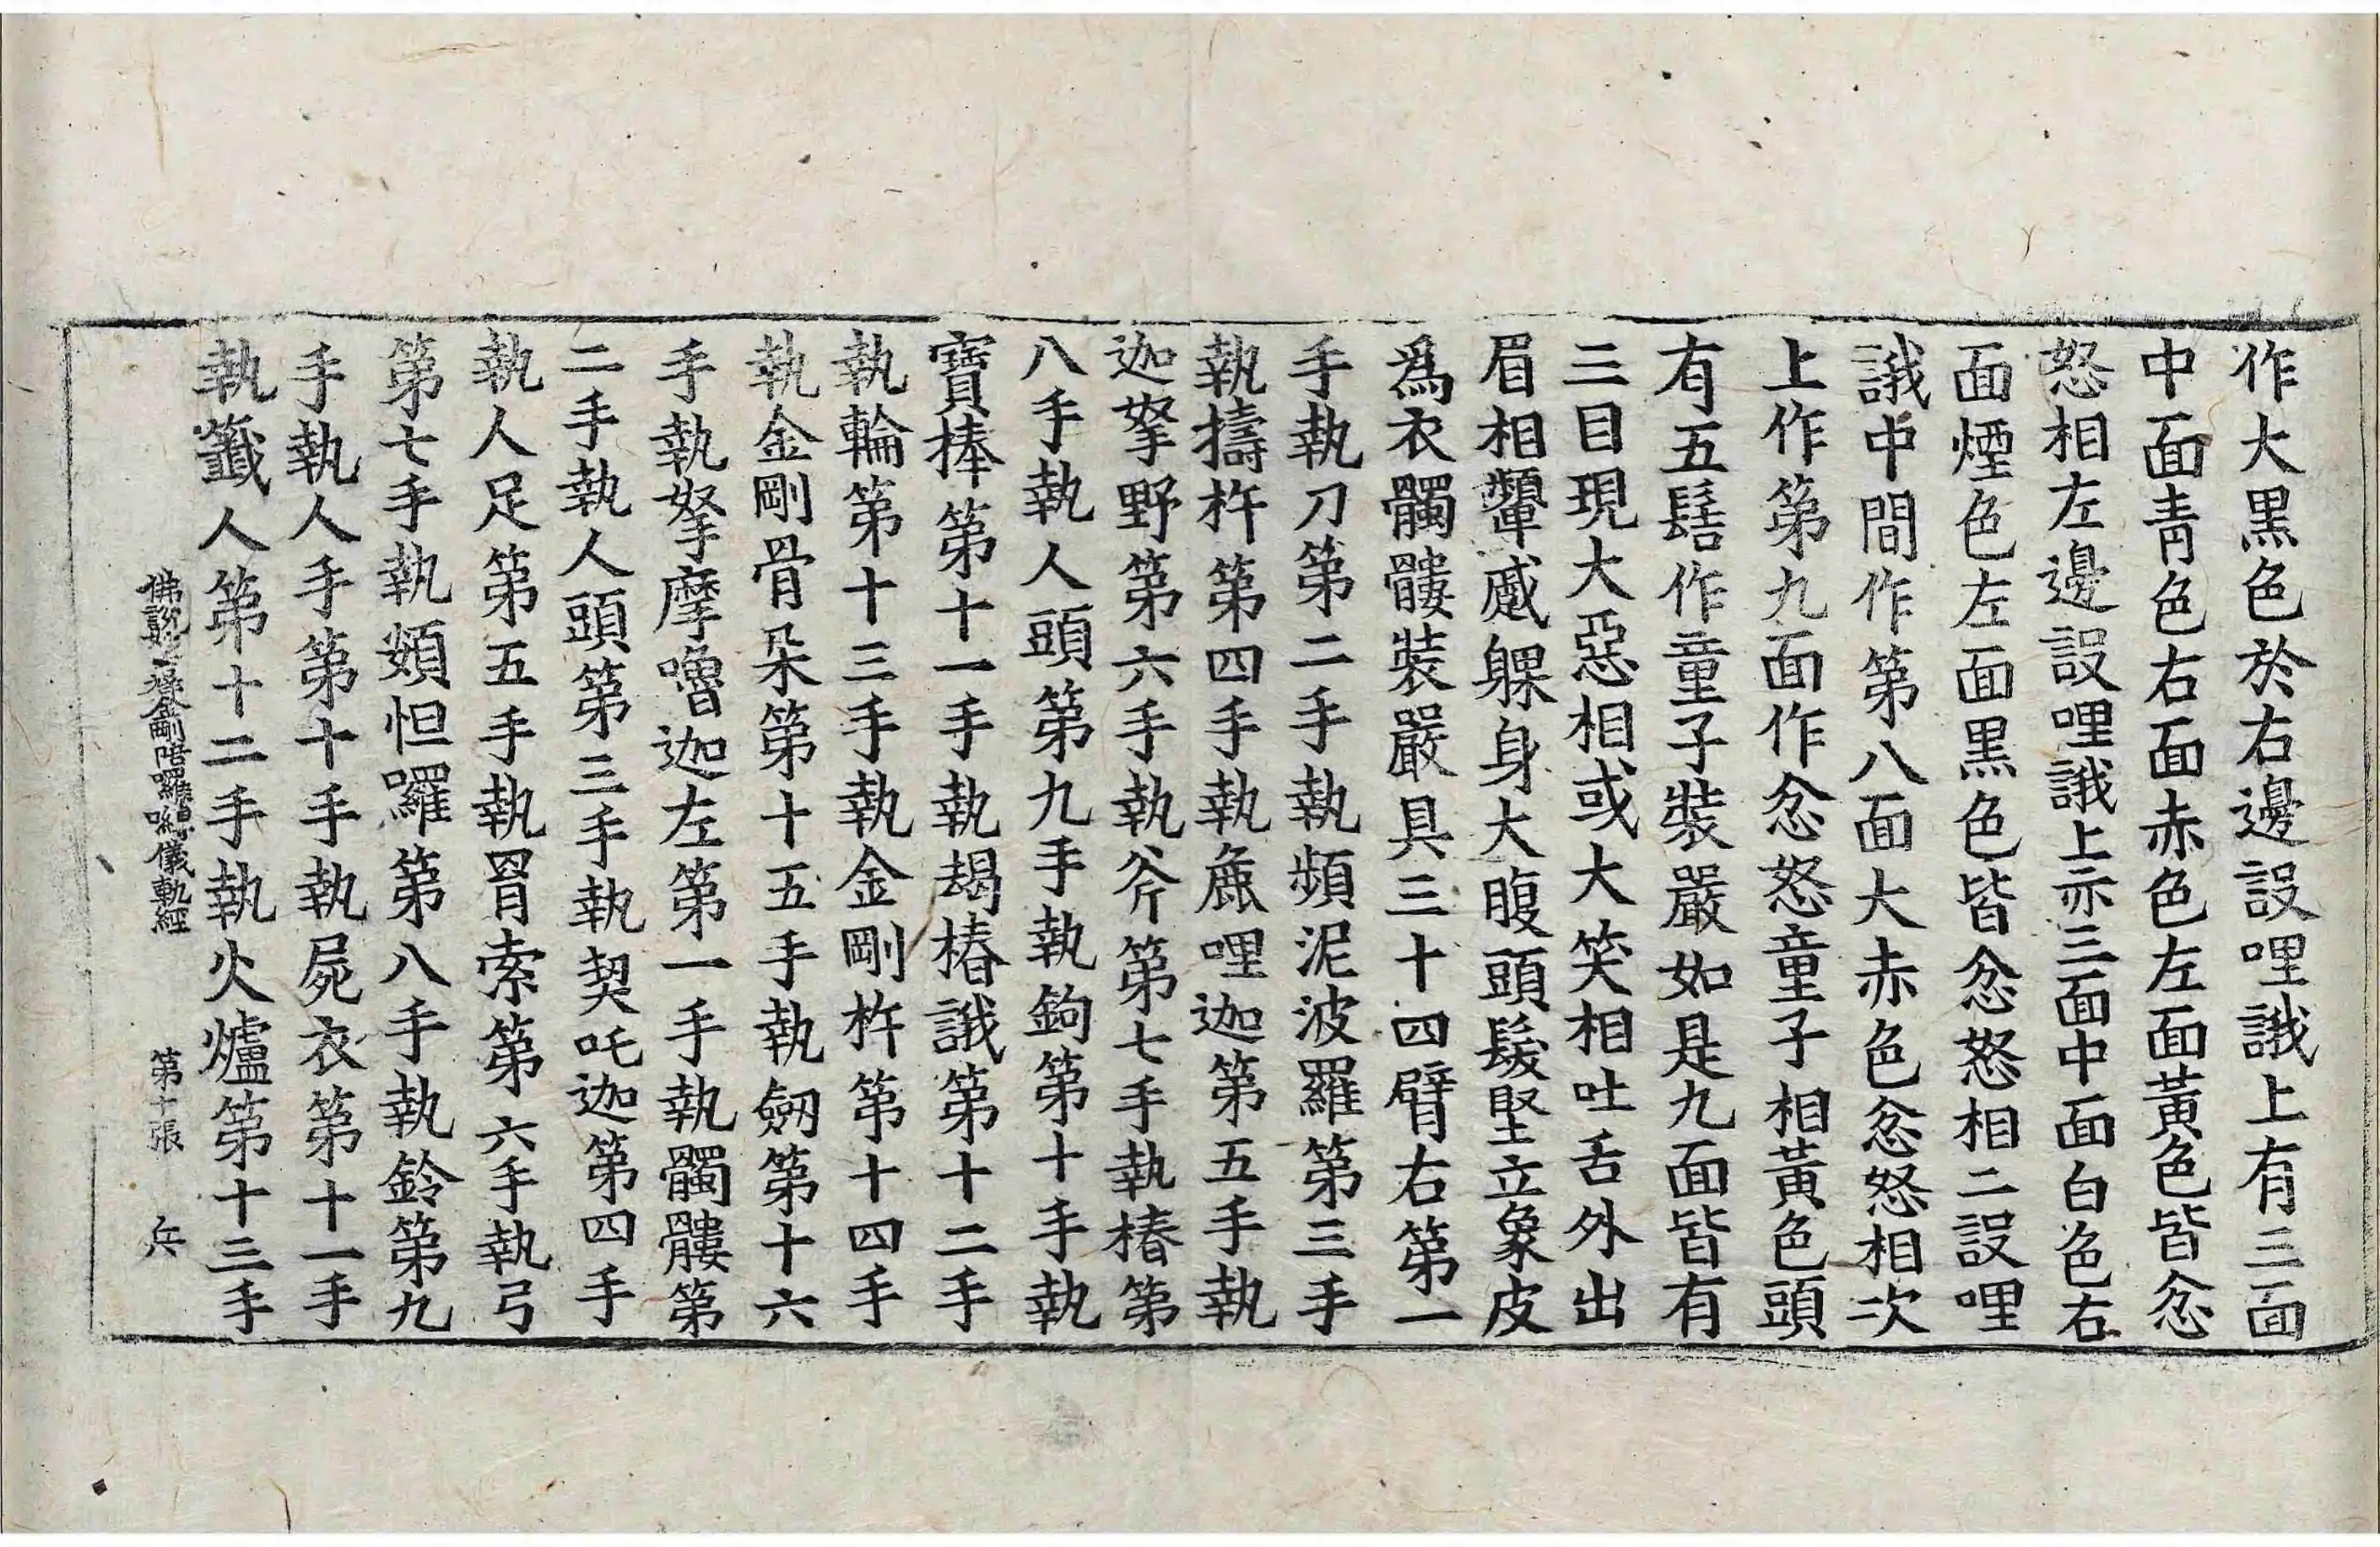 作大黑色於右邊設哩誐上有三面
中面青色右面赤色左面黃色皆忿
怒相左邊設哩誐上亦三面中面白色右
面煙色左面黑色皆忿怒相二設哩
誐中間作第八面大赤色忿怒相次
上作第九面作忿怒童子相黃色頭
有五髻作童子裝嚴如是九面皆有
三目現大惡相或大笑相吐舌外出
眉相顰蹙躶身大腹頭髮竪立象皮
爲衣髑髏裝嚴具三十四臂右第一
手執刀第二手執頻泥波羅第三手
執擣杵第四手執麁哩迦第五手執
迦拏野第六手執斧第七手執樁第
八手執人頭第九手執鉤第十手執
寶捧第十一手執朅樁誐第十二手
執輪第十三手執金剛杵第十四手
執金剛骨朵第十五手執劒第十六
手執拏摩嚕迦左第一手執髑髏第
二手執人頭第三手執契吒迦第四手
執人足第五手執罥索第六手執弓
第七手執頞怛囉第八手執鈴第九
手執人手第十手執屍衣第十一手
執籤人第十二手執火爐第十三手
佛說妙吉祥金剛 儀軌經 第十張 兵